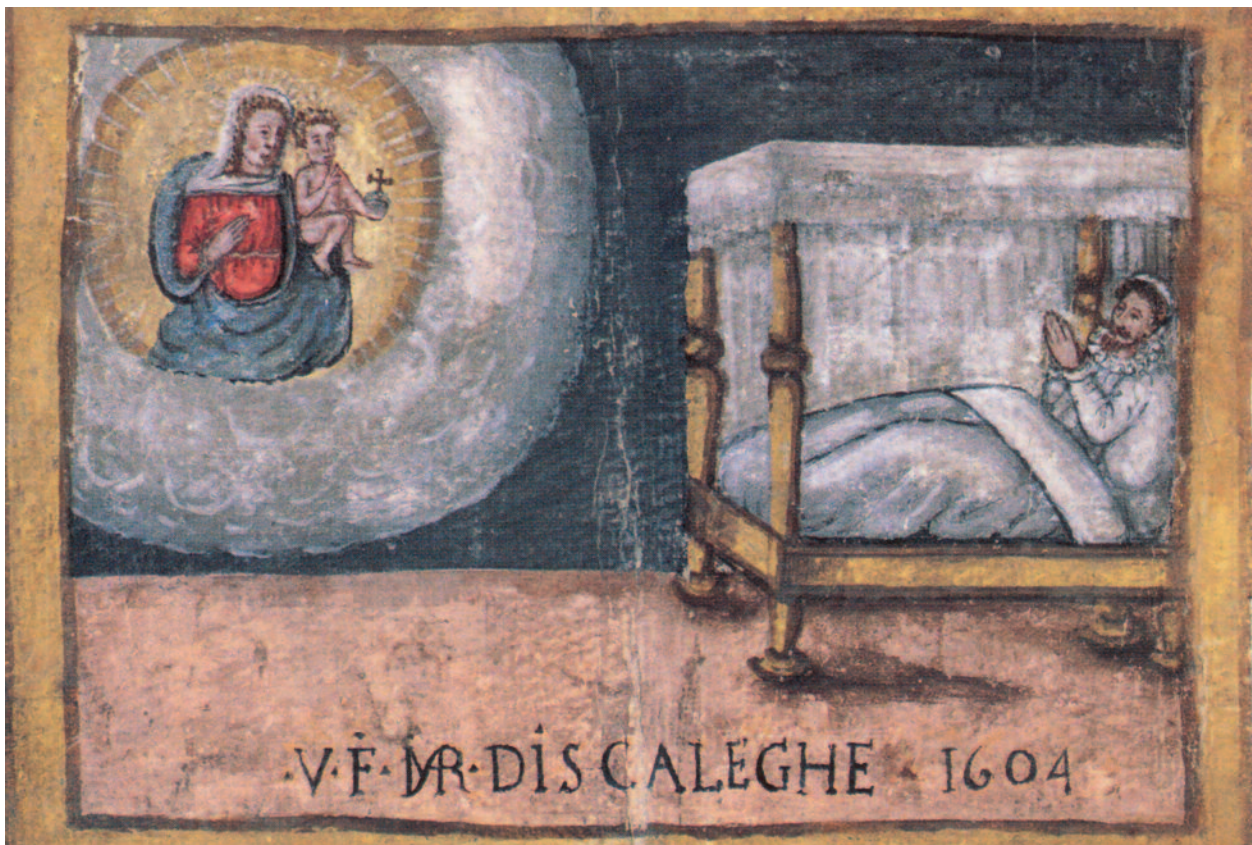 ·V·F·MAR·DISCALEGHE · 1604